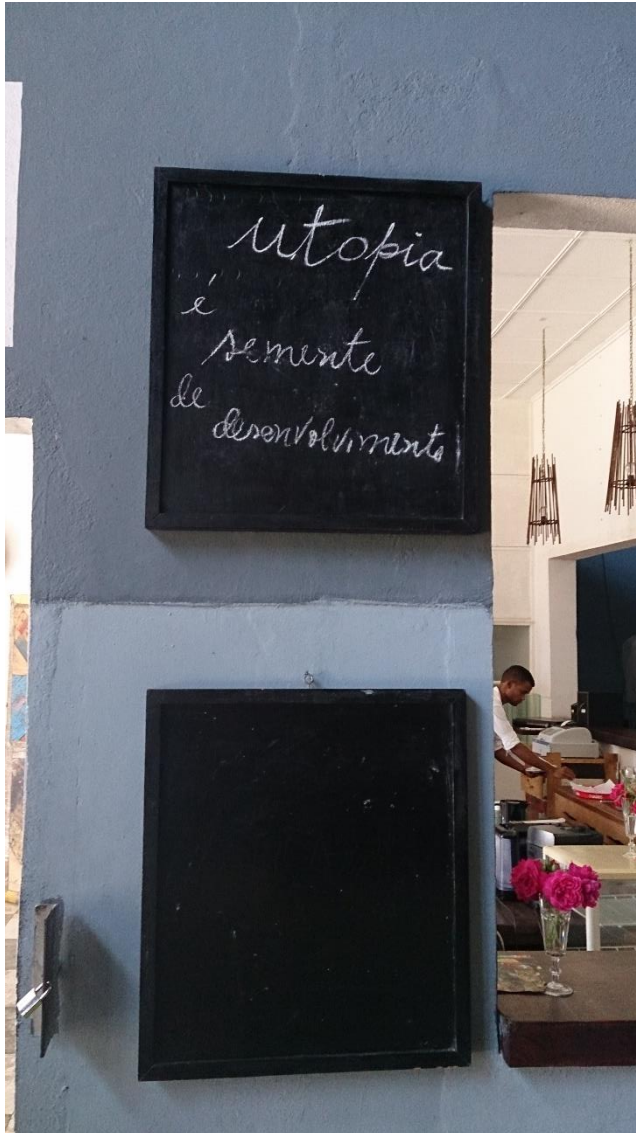 utopia
é
semente
de
desenvolvimento